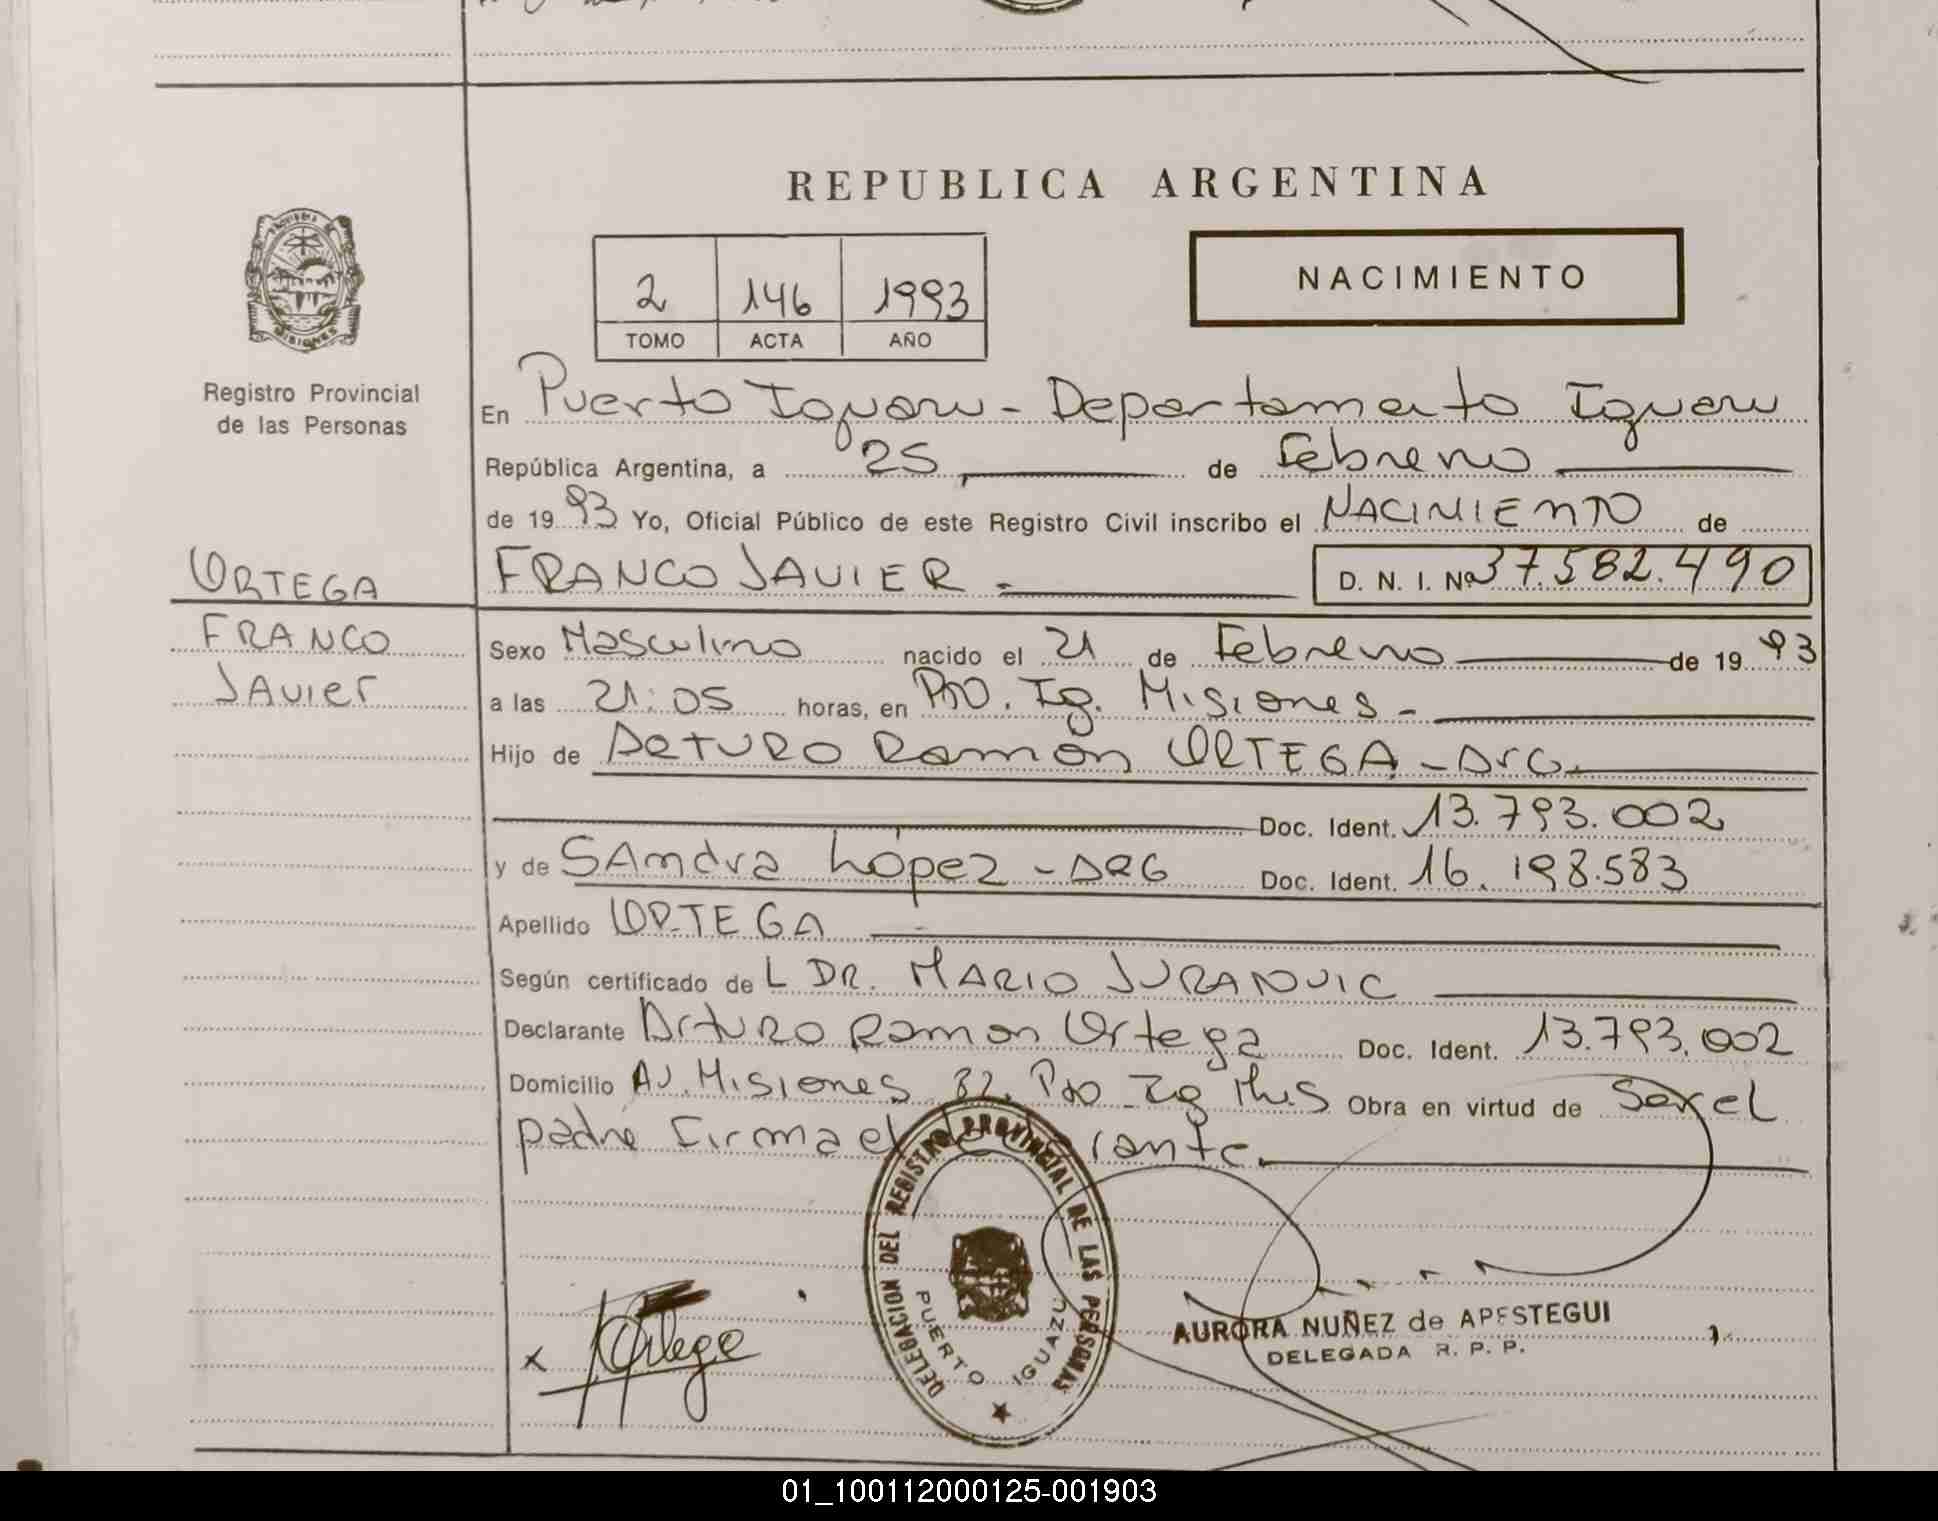 REPUBLICA ARGENTINA
NACIMIENTO
2 146 1993
TOMO ACTA AÑO
MISIONES
Registro Provincial
de las Personas
En Puerto Iguazu - Departamento Iguazu
República Argentina, a 25 de Febrero
de 1993 Yo, Oficial Público de este Registro Civil inscribo el NACIMIENTO de
FRANCO JAVIER.=
D. N. I. Nº 37.582.490
ORTEGA
FRANCO
JAVIER
Sexo Masculino nacido el 21 de Febrero de 1993
a las 21:05 horas, en Pto. Ig. Misiones -
Hijo de ARTURO Ramón ORTEGA - Arg.
Doc. Ident. 13.793.002
y de SAndra López - ARG Doc. Ident. 16.198.583
Apellido ORTEGA
Según certificado de L DR. MARIO JURANOVIC
Declarante Arturo Ramon Ortega Doc. Ident. 13.793.002
Domicilio AV. Misiones 82. Pto Ig Mns Obra en virtud de Ser el
padre Firma el
DELEGACION DEL REGISTRO PROVINCIAL DE LAS PERSONAS
PUERTO IGUAZU
x Ortega
AURORA NUÑEZ de APESTEGUI
DELEGADA R. P. P.
01_100112000125-001903